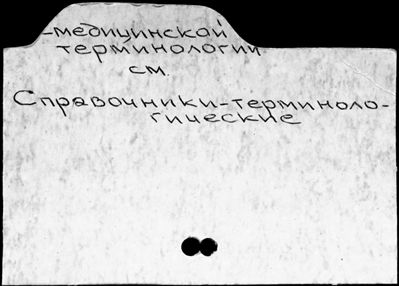 -медицинской
терминологии
см.
Справочники-терминоло-
гические